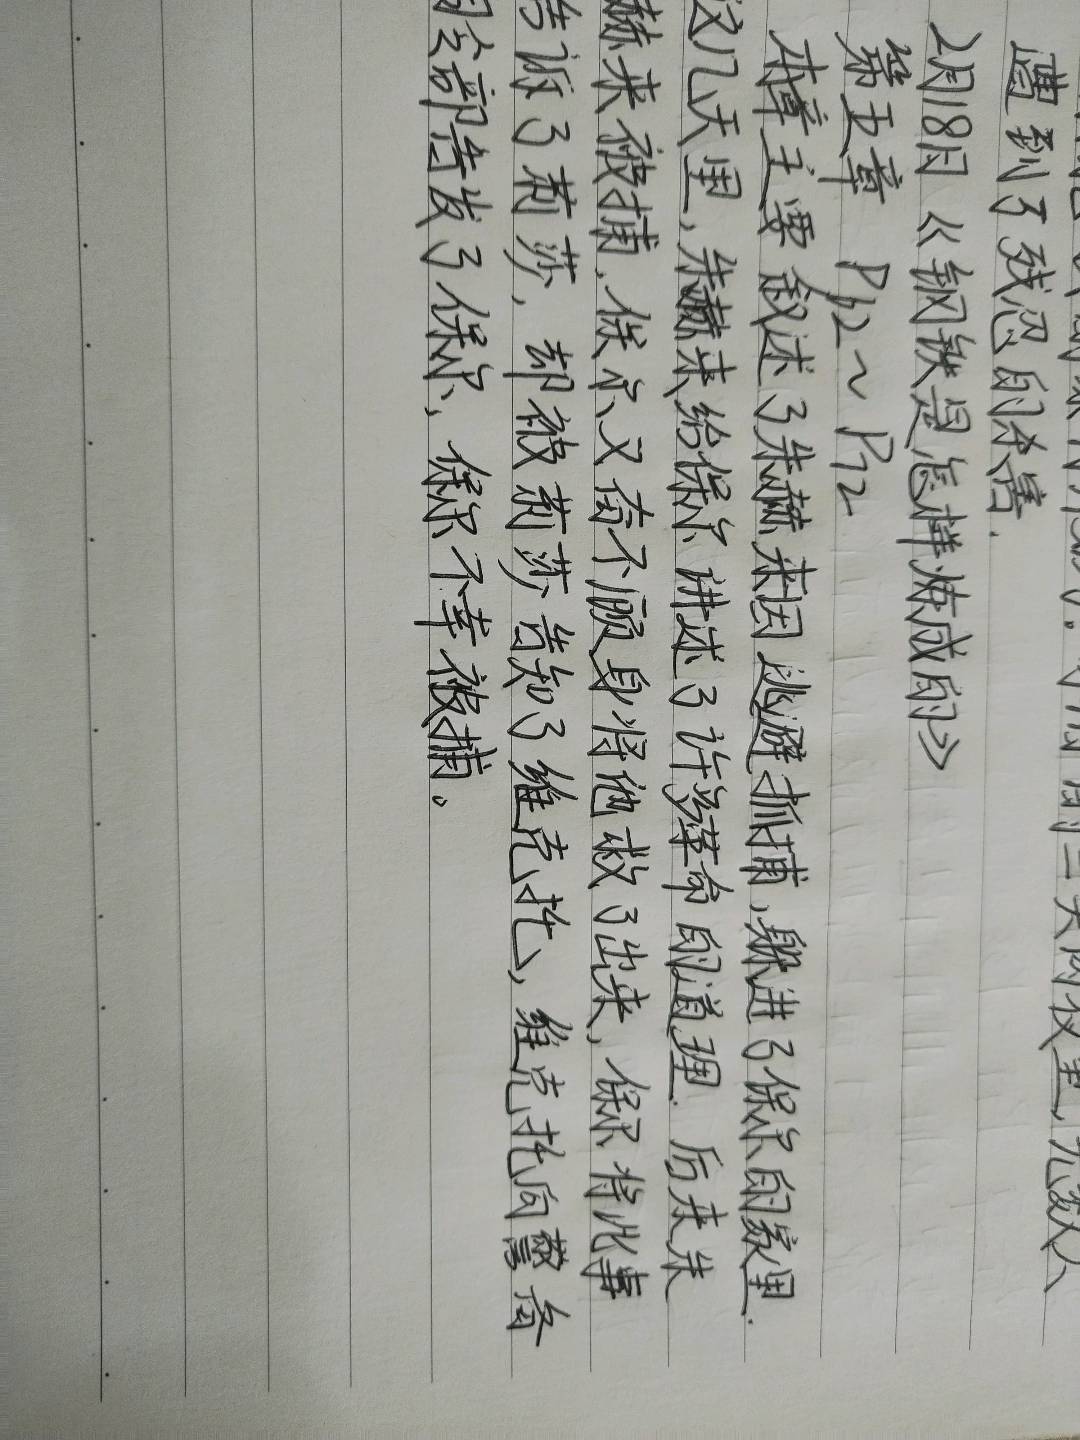 三天两夜里,无数人
遭到了残忍的杀害.
2月18日《钢铁是怎样炼成的》
第五章 P62~P72
本章主要叙述了朱赫来因逃避抓捕,躲进了保尔的家里.
这几天里,朱赫来给保尔讲述了许多革命的道理.后来朱
赫来被捕,保尔又奋不顾身将他救了出来,保尔将此事
告诉了莉莎,却被莉莎告知了维克托,维克托向警备
司令部告发了保尔,保尔不幸被捕。